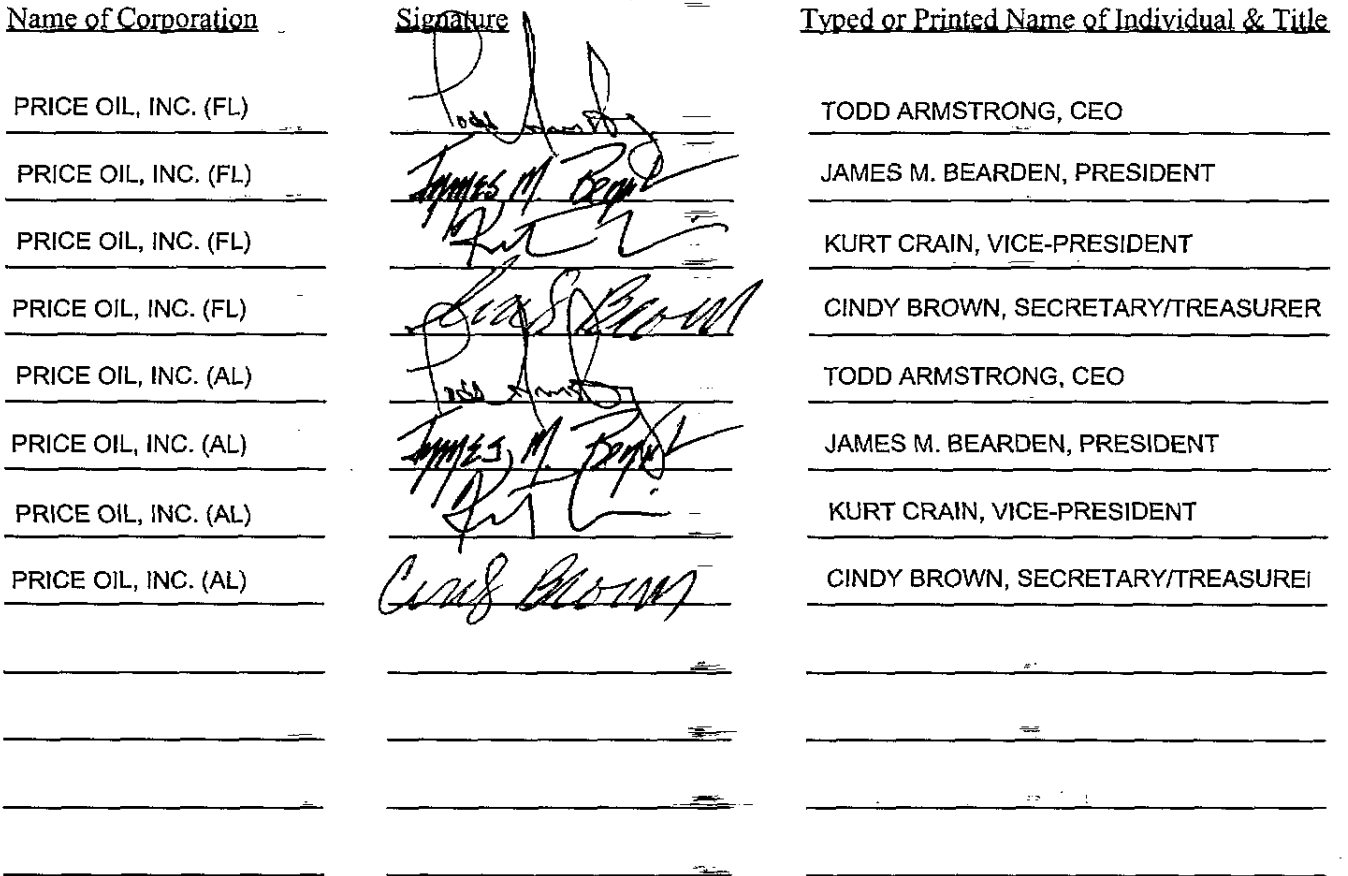 Name of Corporation Signature Typed or Printed Name of Individual & Title
PRICE OIL, INC. (FL) Todd Armstrong TODD ARMSTRONG, CEO
PRICE OIL, INC. (FL) James M. JAMES M. BEARDEN, PRESIDENT
PRICE OIL, INC. (FL) KURT CRAIN, VICE-PRESIDENT
PRICE OIL, INC. (FL) Brown CINDY BROWN, SECRETARY/TREASURER
PRICE OIL, INC. (AL) Todd TODD ARMSTRONG, CEO
PRICE OIL, INC. (AL) James M. JAMES M. BEARDEN, PRESIDENT
PRICE OIL, INC. (AL) KURT CRAIN, VICE-PRESIDENT
PRICE OIL, INC. (AL) Brown CINDY BROWN, SECRETARY/TREASURE